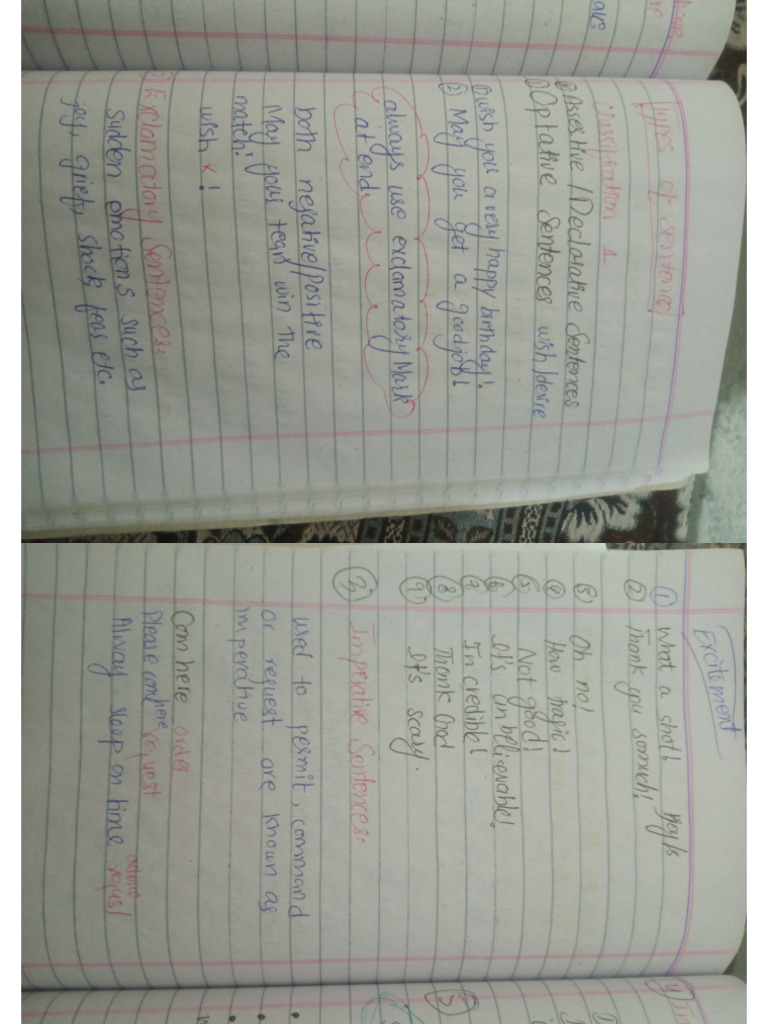 Types of Sentence
classification 1
① Assestive/Declarative Sentences
② Optative Sentences wish/desire
① wish you a very happy birthday!
② May you get a good job!
always use exclamatory Mark
at end
both negative/Positive
May your team win the
match!
wish x!
Exclamatory Sentences:
sudden emotions such as
joy, grief, shock, fear etc.
Excitement
① What a shot!
② Thank you somuch!
③ Oh no!
④ How tragic!
⑤ Not good!
⑥ It's unbelievable!
⑦ Incredible!
⑧ Thank God
⑨ It's scary.
③ Imperative Sentences:
used to permit, command
or request are known as
imperative
Com here order
Please com here request
Alway sleep on time